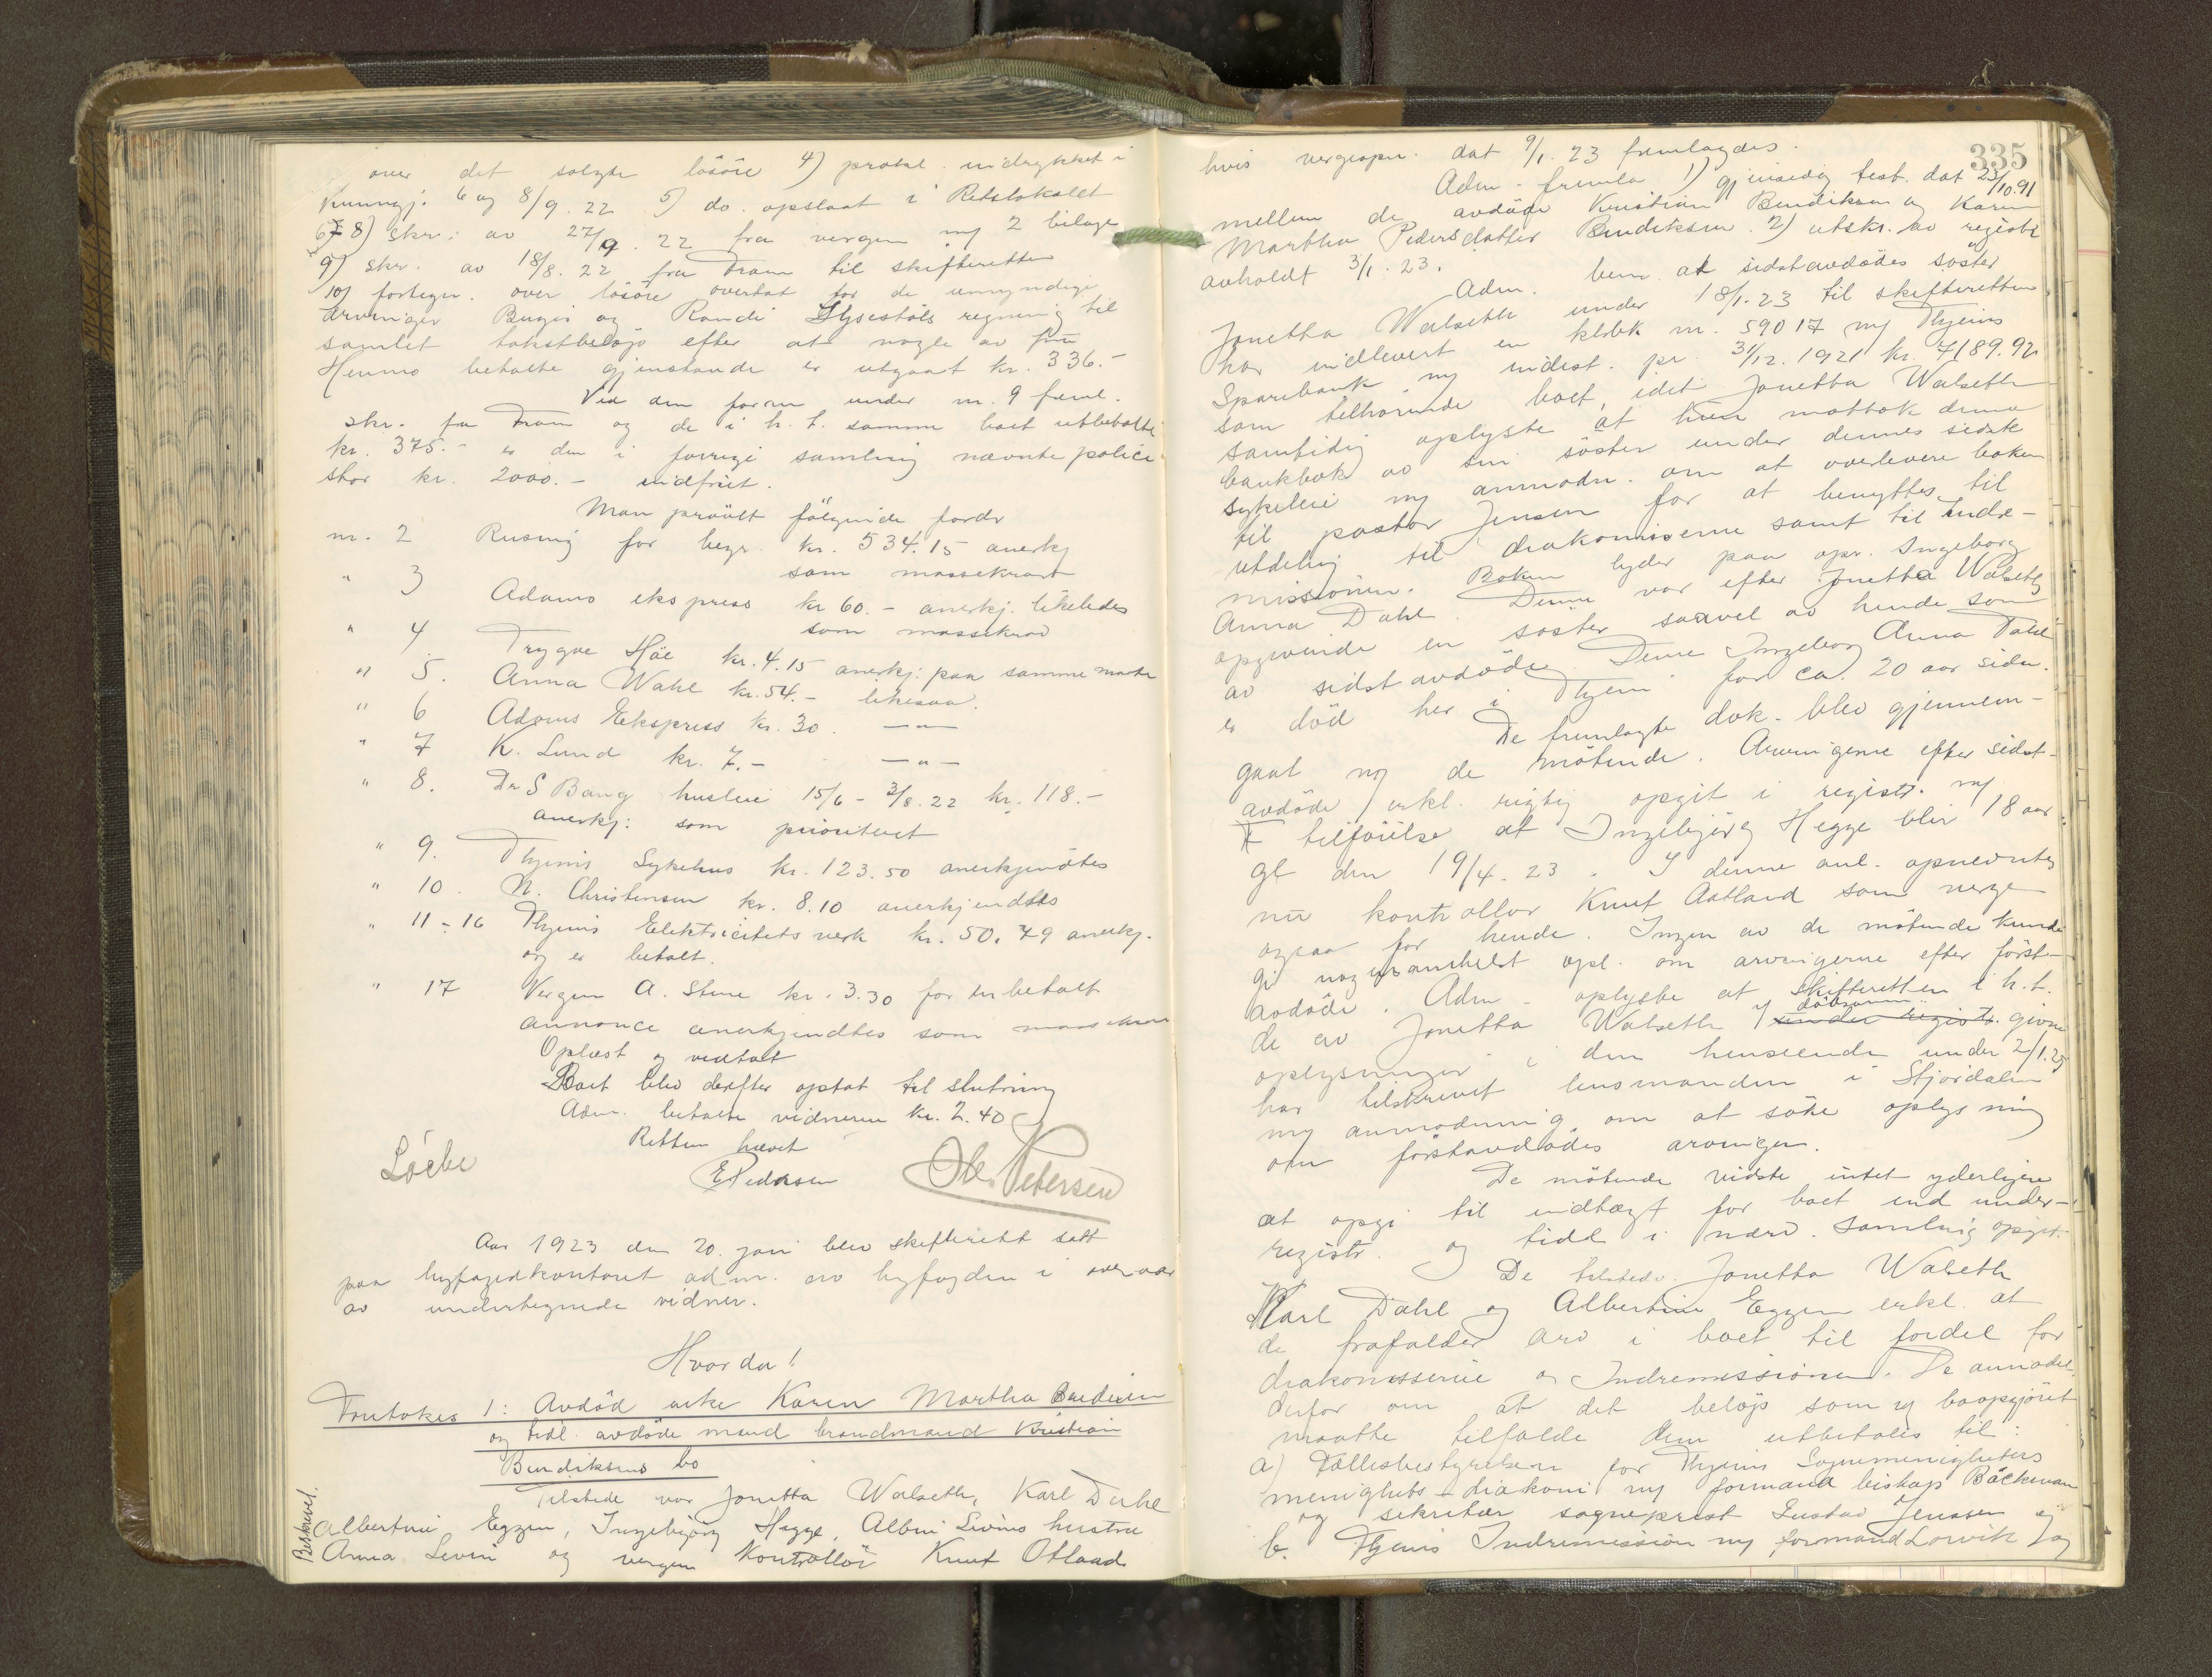 over det solgte løsøre 4) protol. indrykket i
Kunngj. 6 og 8/9. 22 5) do. opslaat i Retslokalet
6 7 8) skr. av 27/9. 22 fra vergen m/ 2 bilage
9) skr. av 18/8. 22 fra Fram til skifteretten
10) fortegn. over løsøre overtat for de umyndige
arvinger Birger og Randi regning til
samlet takstbeløp efter at nogle av fru
Henmo betalte gjenstande er utgaat kr. 336.-
Ved den foran under nr. 9 freml.
skr. fra Fram og de i h. t. samme boet utbetalte
kr. 375.- er den i forrige samling nævnte police
stor kr. 2000.- indfriet.
Man prøvet følgende fordr
nr. 2 Rusing for begr. kr. 534.15 anerkj
som massekrav
" 3 Adams ekspress kr 60.- anerkj. likeledes
som massekrav
" 4 Trygve Høe kr. 4.15 anerkj: paa samme maate
" 5. Anna Wahl kr. 54.- likesaa.
" 6 Adams Ekspress kr. 30. —"—
" 7 K. Lund kr. 7.- —"—
" 8. Dr S Bang husleie 15/6 - 3/8. 22 kr. 118.-
anerkj: som prioritert
" 9. Thjems Sykehus kr. 123.50 anerkjendtes
" 10. N. Christensen kr. 8.10 anerkjendtes
" 11-16 Thjems Elektricitetsverk kr. 50.49 anerkj.
og er betalt.
" 17 Vergen A. Stene kr. 3.30 for en betalt
annonce anerkjendtes som massekrav
Oplæst og vedtat
Boet blev derefter optat til slutning
Adm. betalte vidnerne kr. 2.40
Retten hævet
Løche E Pedersen Ole Petersen
Aar 1923 den 20. jan blev skifterett satt
paa byfogedkontoret adm. av byfogden i overvær
av undertegnede vidner.
Hvorda!
Foretokes 1: Avdød enke Karen Martha Bendiksen
og tidl. avdøde mand brandmand Kristian
Bendiksens bo
Beskrevet.
Tilstede var Jonetta Walseth, Karl Dahl
Albertine Eggen, Ingebjørg Hegge, Albin Levins hustru
Anna Levin og vergen Kontrollør Knut Otland
335
hvis vergeopn. dat 9/1. 23 fremlagdes.
Adm. fremla 1) gjensidig test. dat 23/10.91
mellem de avdøde Kristian Bendiksen og Karen
Martha Pedersdatter Bendiksen. 2) utskr. av registr
avholdt 3/1. 23.
Adm. bem. at sidstavdødes søster
Jonetta Walseth under 18/1. 23 til skifteretten
har indlevert en kbok nr. 59017 m/ Thjems
Sparebank m/ indest. pr. 31/12. 1921 kr. 4189.92
som tilhørende boet, idet Jonetta Walseth
samtidig oplyste at hun mottok denne
bankbok av sin søster under dennes sidste
sykeleie m/ anmodn. om at overlevere boken
til pastor Jensen for at benyttes til
utdeling til diakonisserne samt til Indre-
missionen. Boken lyder paa opr. Ingeborg
Anna Dahl. Denne var efter Jonetta Walseths
opgivende en søster saavel av hende som
av sidstavdøde. Denne Ingeborg Anna Dahl
er død her i Thjem for ca. 20 aar siden.
De fremlagte dok. blev gjennem-
gaat m/ de møtende. Arvingerne efter sidst-
avdøde erkl. rigtig opgit i registr. m/
tilføielse at Ingebjørg Hegge blir 18 aar
gl den 19/4. 23. I denne anl. opnevntes
nu kontrollør Knut Aatland som verge
ogsaa for hende. Ingen av de møtende kunde
gi nogensomhelst opl. om arvingerne efter først-
avdøde. Adm. oplyste at skifteretten i h. t.
de av Jonetta Walseth i dødsanm. under registr. givne
oplysninger i den henseende under 2/1. 23
har tilskrevet lensmanden i Stjørdalen
m/ anmodning om at søke oplysning
om førstavdødes arvinger.
De møtende vidste intet yderligere
at opgi til indtægt for boet end under
registr. og tidl i nærv. samling opgit.
De tilstedev. Jonetta Walseth
Karl Dahl og Albertine Eggen erkl at
de frafalder arv i boet til fordel for
diakonisserne og Indremissionen. De anmodet
derfor om at det beløp som v/ boopgjøret
maatte tilfalde dem utbetales til:
a) Fællesbestyrelsen for Thjems Sognemenigheters
menighets-diakoni m/ formand biskop Bøckman
og sekretær sogneprest Gustav Jenssen og
b. Thjems Indremission m/ formand Lorvik og